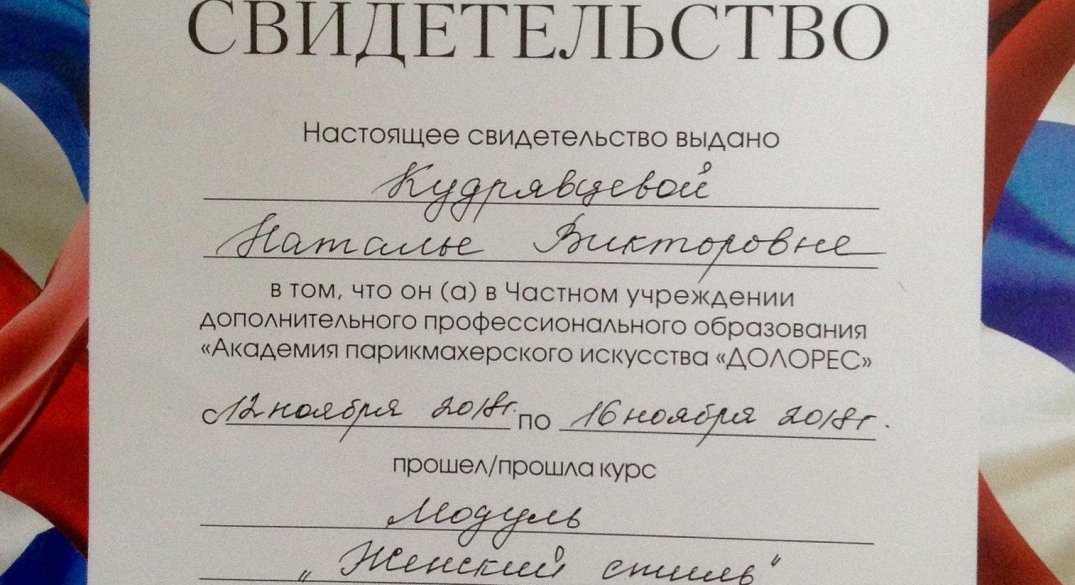 СВИДЕТЕЛЬСТВО
Настоящее свидетельство выдано
Кудрявцевой
Наталье Викторовне
в том, что он (а) в Частном учреждении
дополнительного профессионального образования
«Академия парикмахерского искусства «ДОЛОРЕС»
с 12 ноября 2018г. по 16 ноября 2018г.
прошел/прошла курс
Модуль
"Женский стиль"